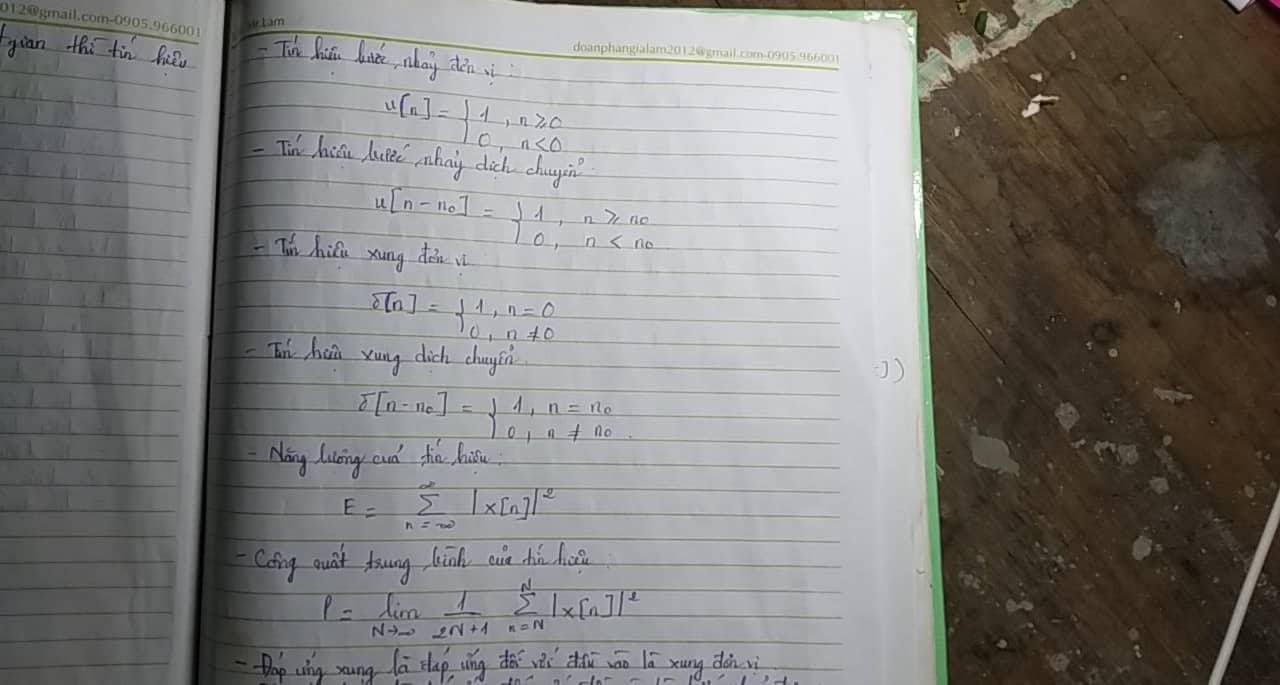 012@gmail.com-0905.966001
gian thì tín hiệu
Mr.Lam
doanphangialam2012@gmail.com-0905.966001
- Tín hiệu bước nhảy đơn vị :
u[n] = { 1 , n ≥ 0
0 , n < 0
- Tín hiệu bước nhảy dịch chuyển
u[n - n₀] = { 1 , n ≥ n₀
0 , n < n₀
- Tín hiệu xung đơn vị
δ[n] = { 1 , n = 0
0 , n ≠ 0
- Tín hiệu xung dịch chuyển
δ[n - n₀] = { 1 , n = n₀
0 , n ≠ n₀ .
- Năng lượng của tín hiệu :
E = ∞ ∑ n = -∞ |x[n]|²
- Công suất trung bình của tín hiệu :
P = lim N→∞ 1/(2N+1) N ∑ n=N |x[n]|²
- Đáp ứng xung là đáp ứng đối với đầu vào là xung đơn vị